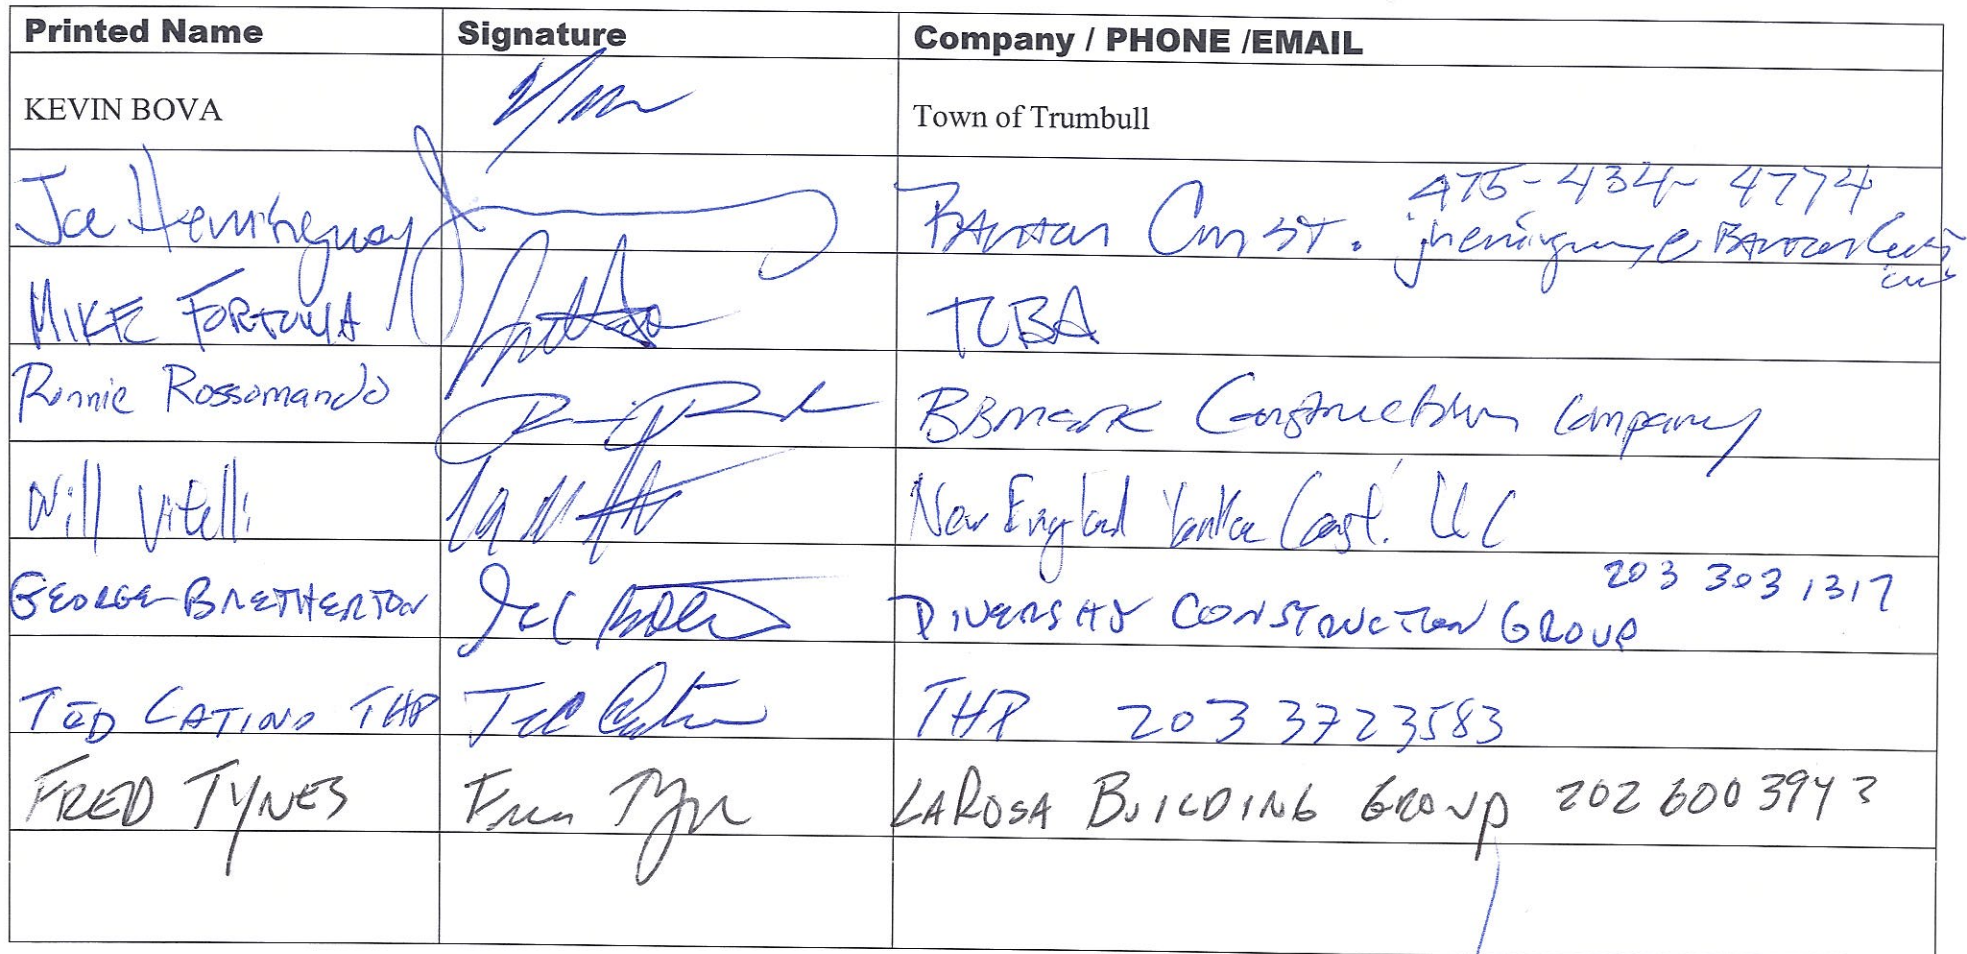 Printed Name Signature Company / PHONE /EMAIL
KEVIN BOVA Town of Trumbull
Joe Hemingway Const. 475-434-4774
MIKE FORTUNA TCBA
Ronnie Rossomando BBMARK Construction Company
Will Vitelli New England Yankee Const. LLC
GEORGE BRETHERTON DIVERSITY CONSTRUCTION GROUP 203 303 1317
TED CATINO THP Ted THP 203 3723583
FRED TYNES LAROSA BUILDING GROUP 202 600 3943